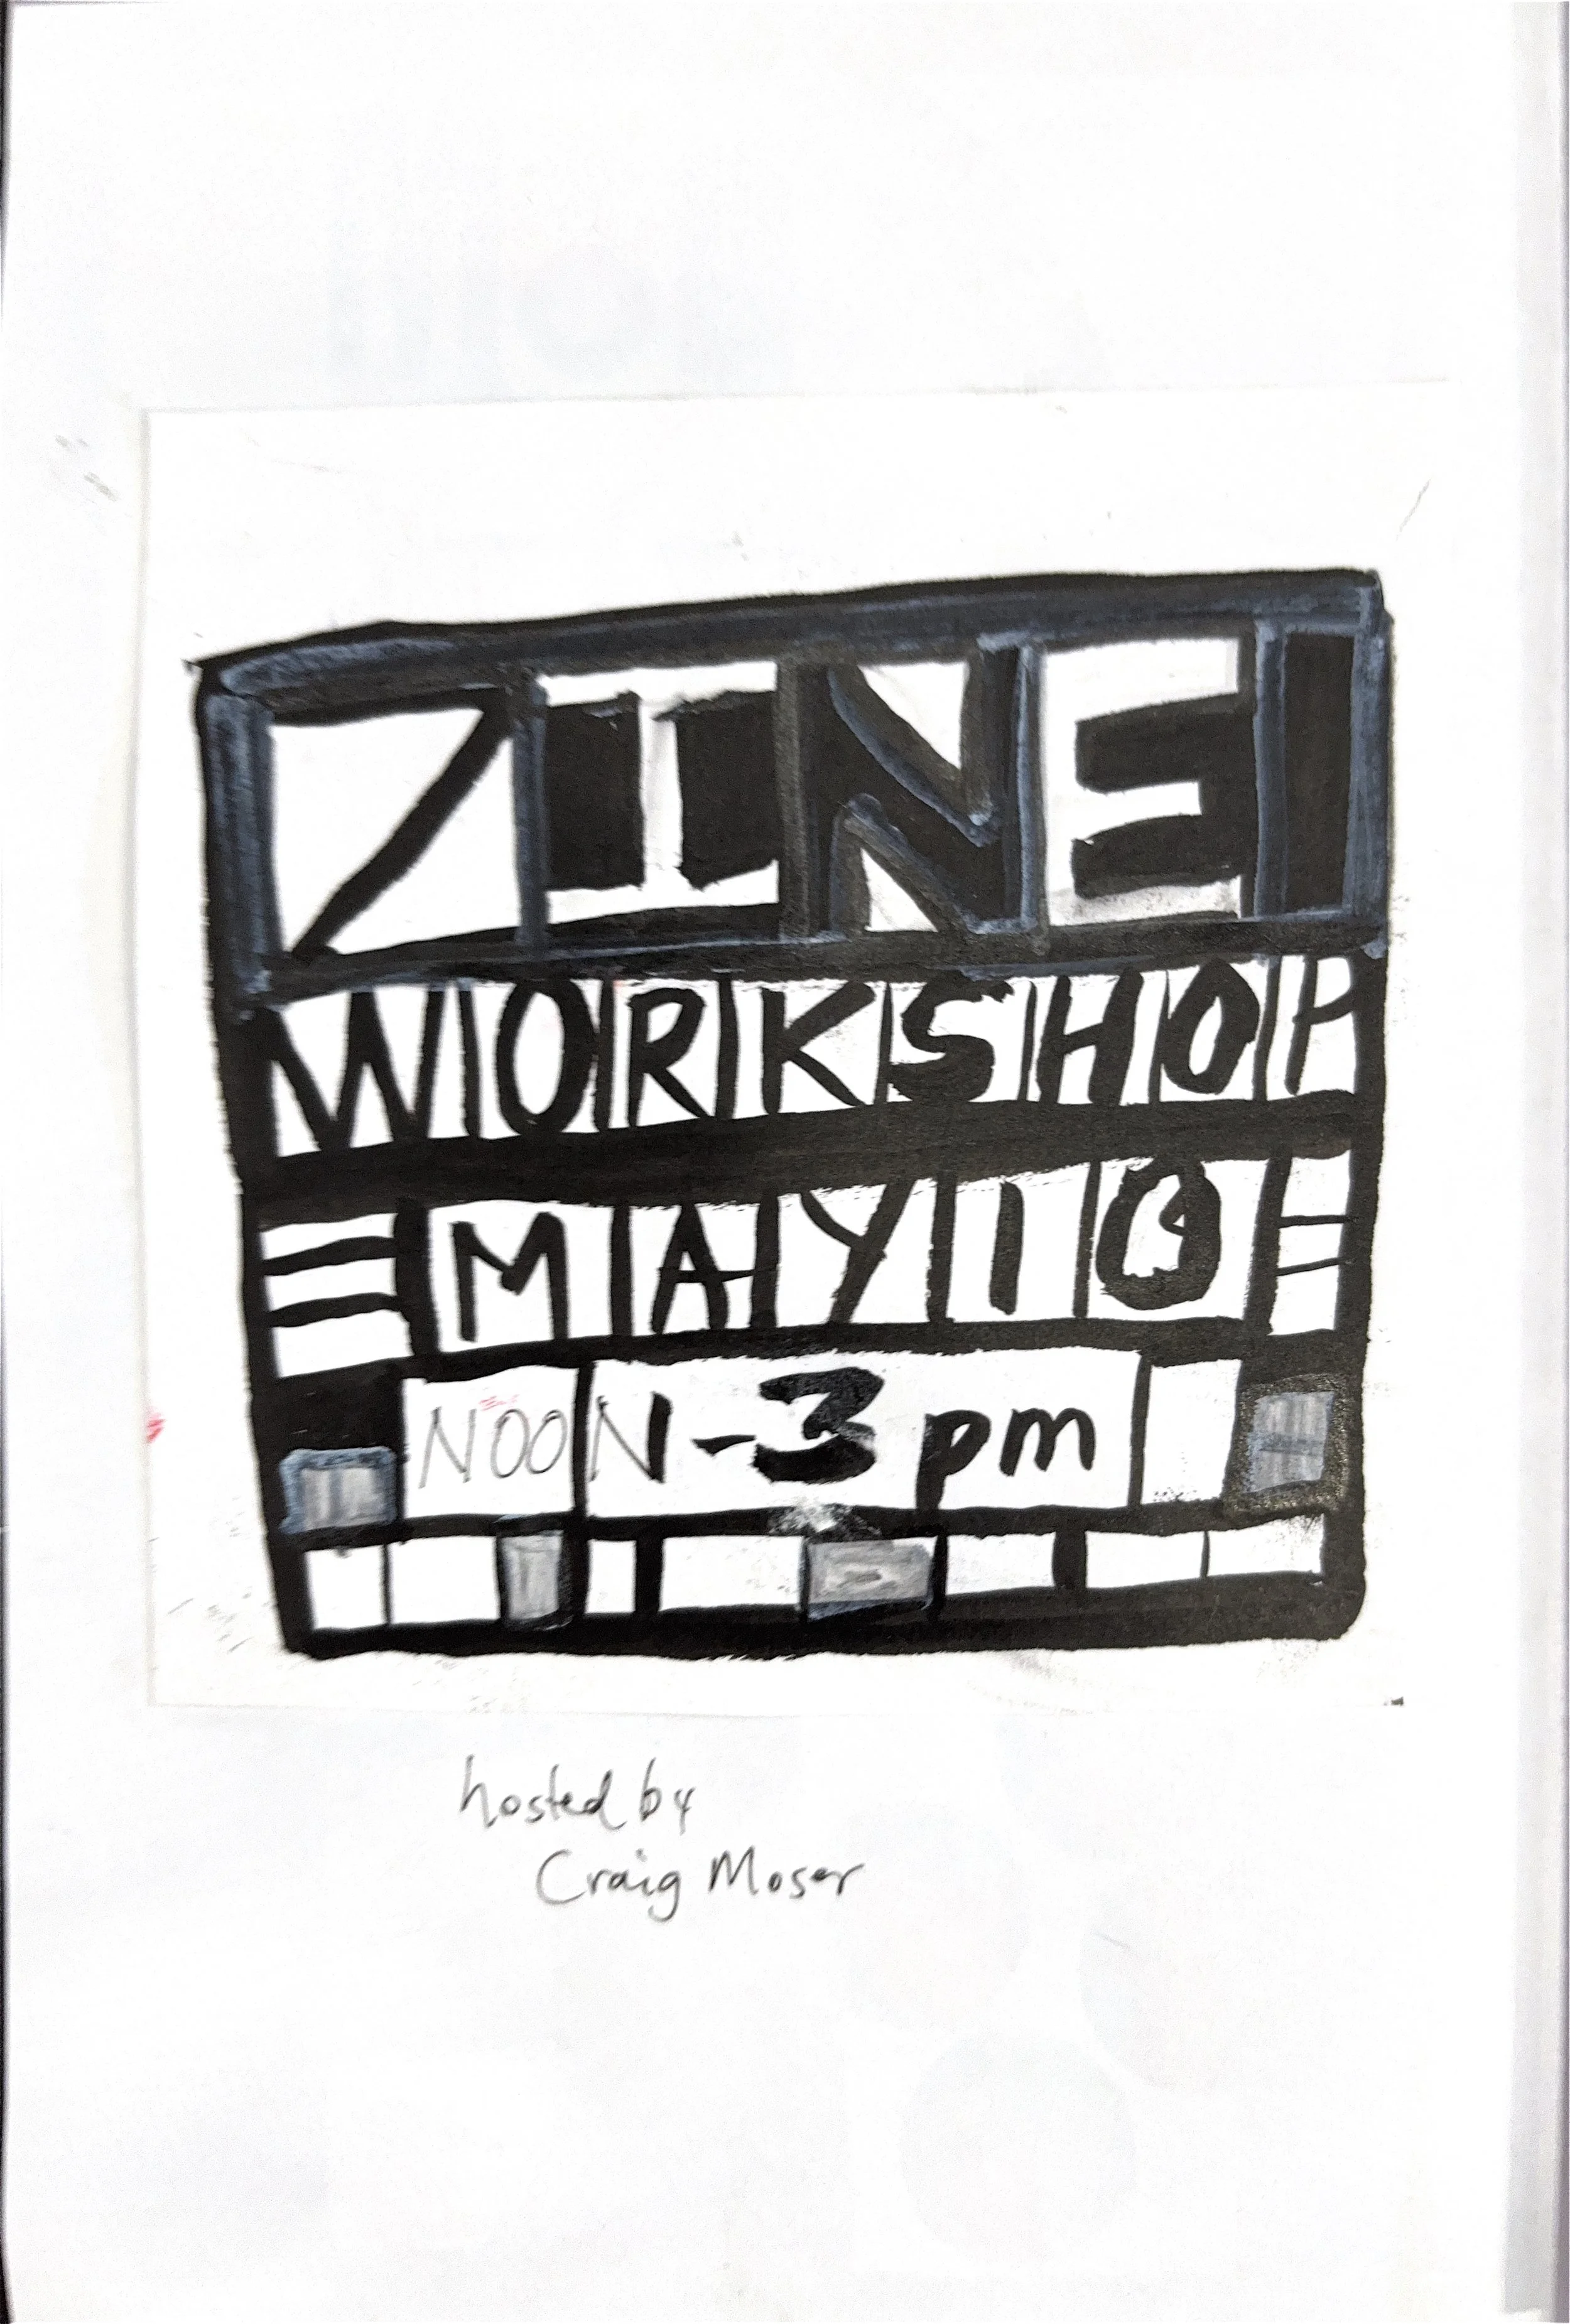 ZINE
WORKSHOP
MAY 10
NOON-3 pm
hosted by
Craig Moser